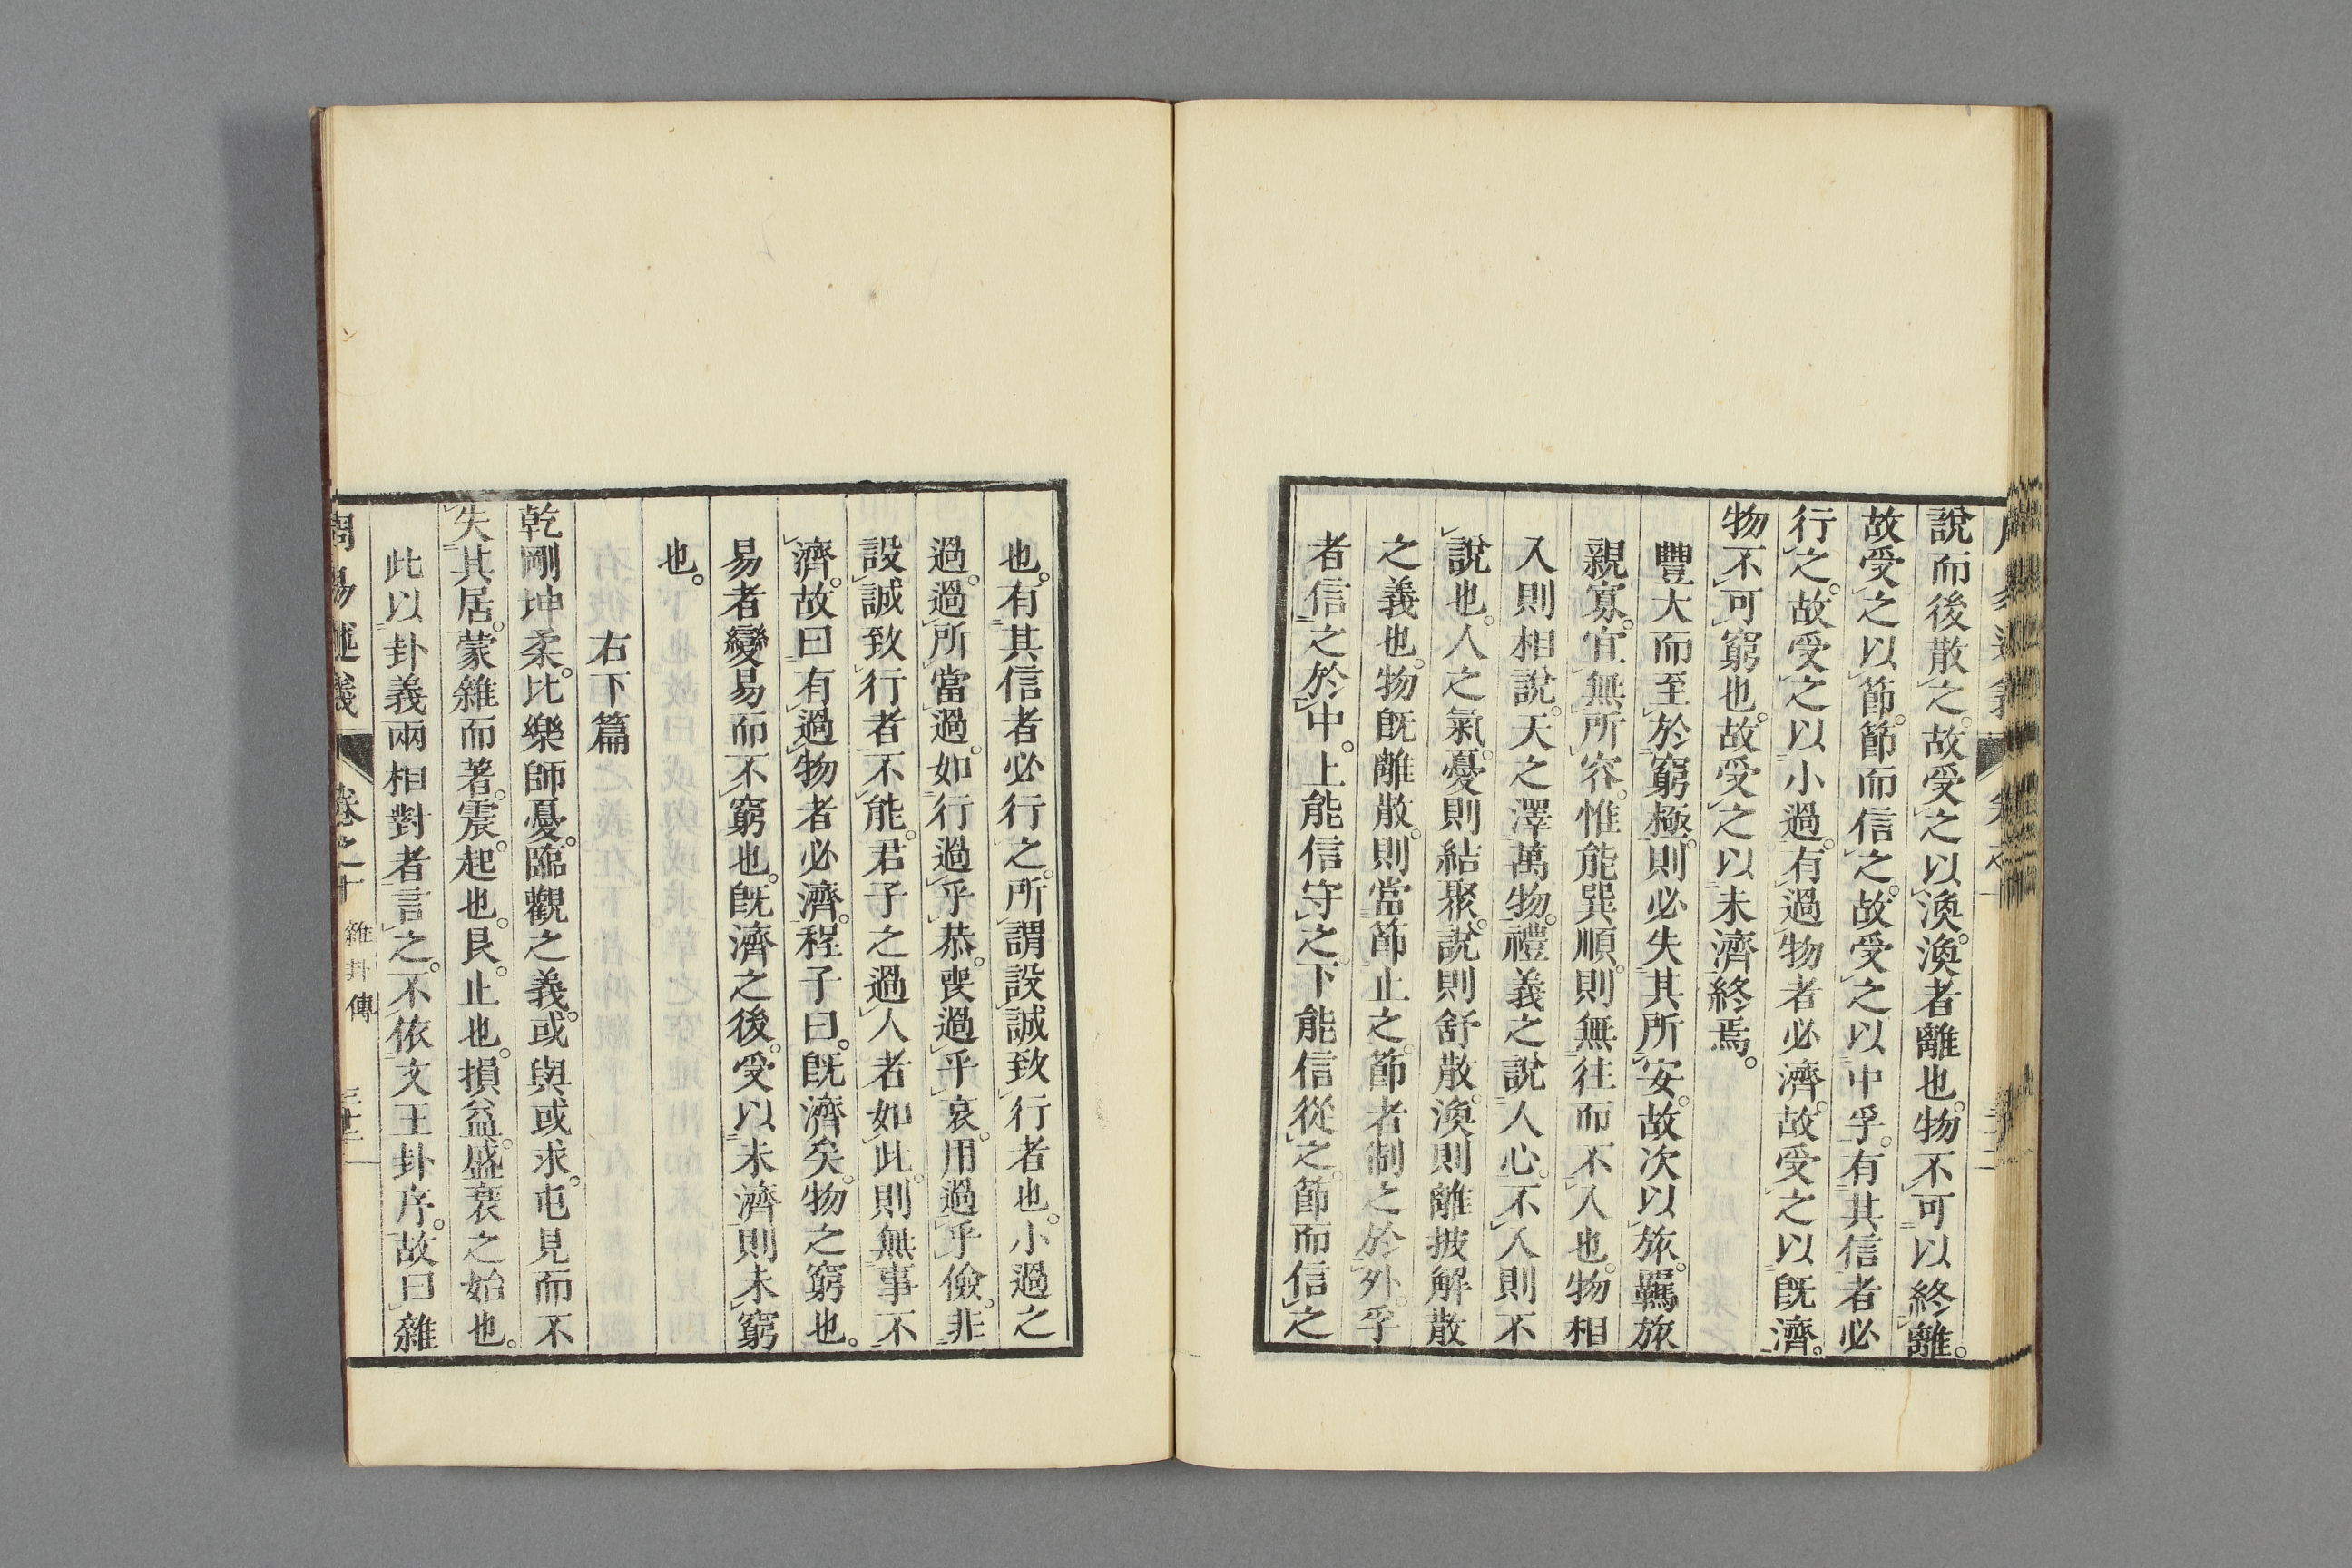 說而後散之。故受之以渙。渙者離也。物不可以終離。
故受之以節。節而信之。故受之以中孚。有其信者必
行之。故受之以小過。有過物者必濟。故受之以旣濟。
物不可窮也。故受之以未濟終焉。
豐大而至於窮極。則必失其所安。故次以旅。羈旅
親寡。宜無所容。惟能巽順。則無往而不入也。物相
入則相說。天之澤萬物。禮義之說人心。不入則不
說也。人之氣。憂則結聚。說則舒散。渙則離披解散
之義也。物旣離散。則當節止之。節者制之於外。孚
者信之於中。上能信守之。下能信從之。節而信之
也。有其信者必行之。所謂設誠致行者也。小過之
過。過所當過。如行過乎恭。喪過乎哀。用過乎儉。非
設誠致行者不能。君子之過人者如此。則無事不
濟。故曰有過物者必濟。程子曰。旣濟矣。物之窮也。
易者變易而不窮也。旣濟之後。受以未濟則未窮
也。
右下篇
乾剛坤柔。比樂師憂。臨觀之義。或與或求。屯見而不
失其居。蒙雜而著。震。起也。艮。止也。損益。盛衰之始也。
此以卦義兩相對者言之。不依文王卦序。故曰雜
周易述義 卷之十 雜卦傳 三十三